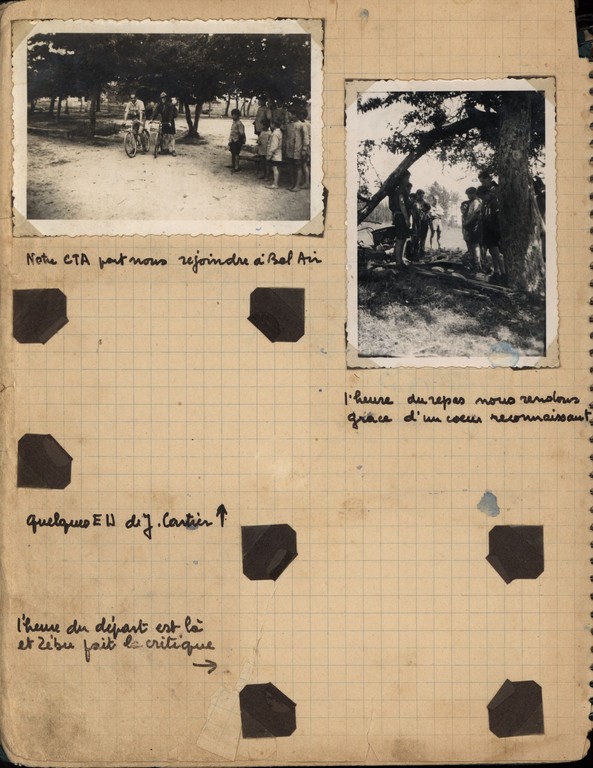 Notre CTA part nous rejoindre à Bel Air
l'heure du repas nous rendons
grace d'un coeur reconnaissant
quelques E U de J. Cartier ↑
l'heure du départ est là
et Zébu fait la critique
→